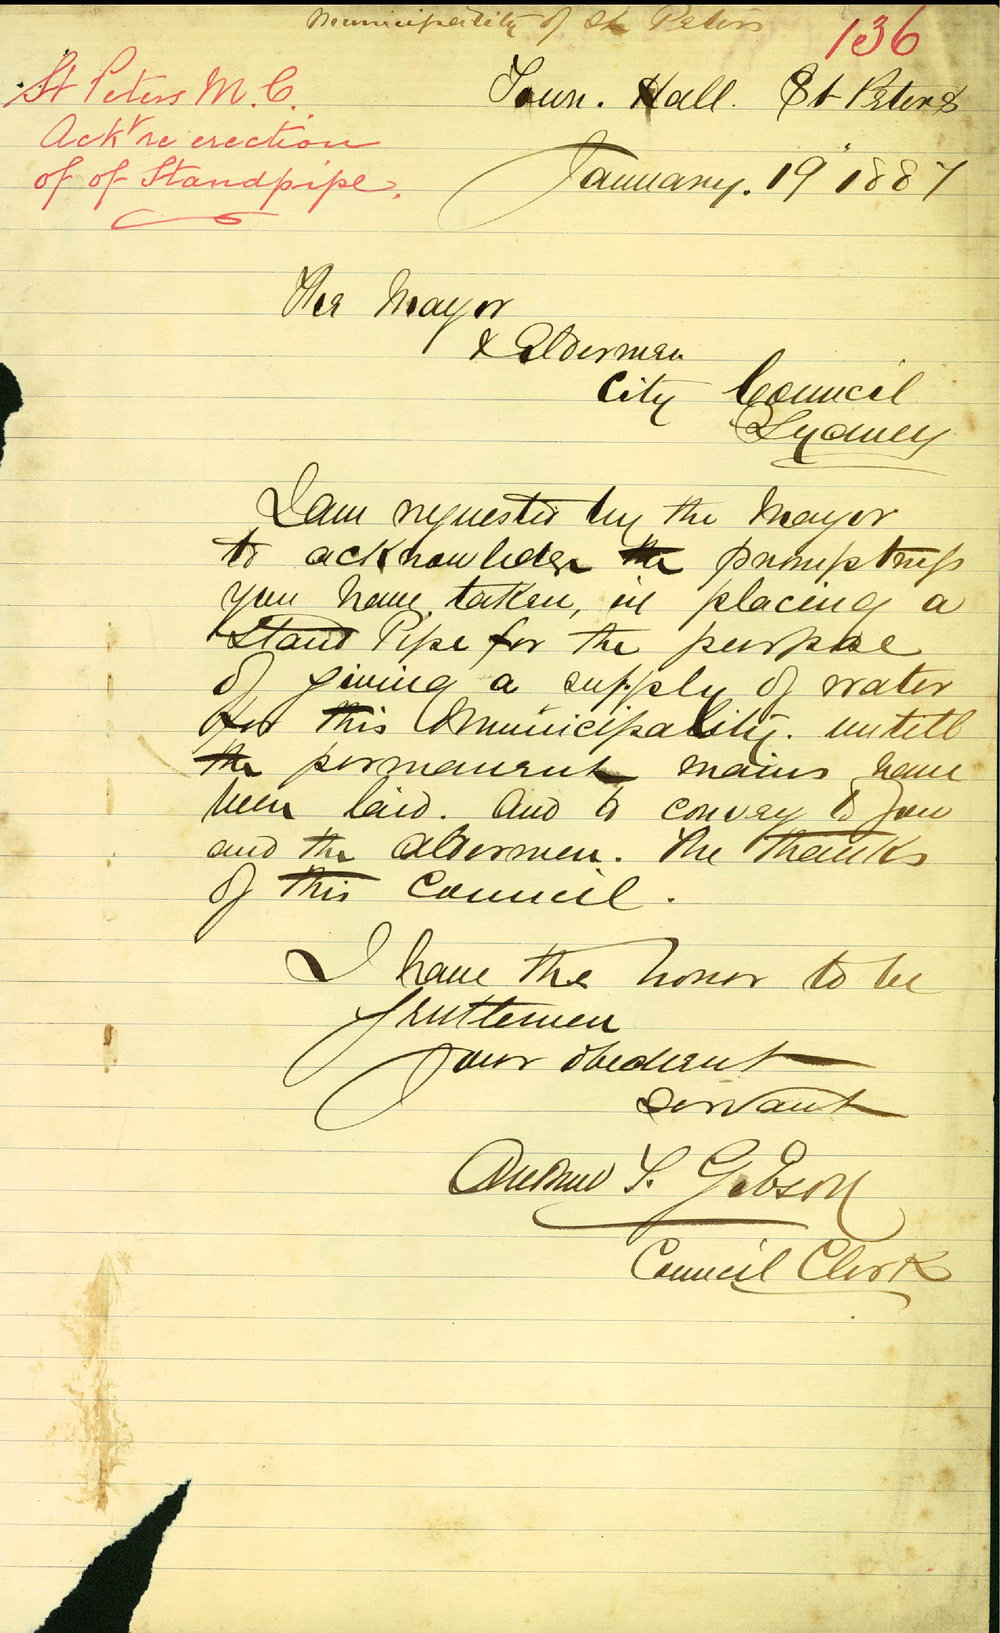 Municipality of St Peters
136
St Peters M.C.
Ackt re erection
of of Standpipe.
Town. Hall. St Peters
January. 19" 1887
The Mayor
& Aldermen
City Council
Sydney
I am requested by the Mayor
to acknowledge the promptness
you have taken, in placing a
Stand Pipe for the purpose
of giving a supply of water
for this Municipality. untill
the permanent mains have
been laid. And to convey to you
and the Aldermen. The thanks
of this Council.
I have the honor to be
Gentlemen
your obedient
servant
Andrew T. Gibson
Council Clerk